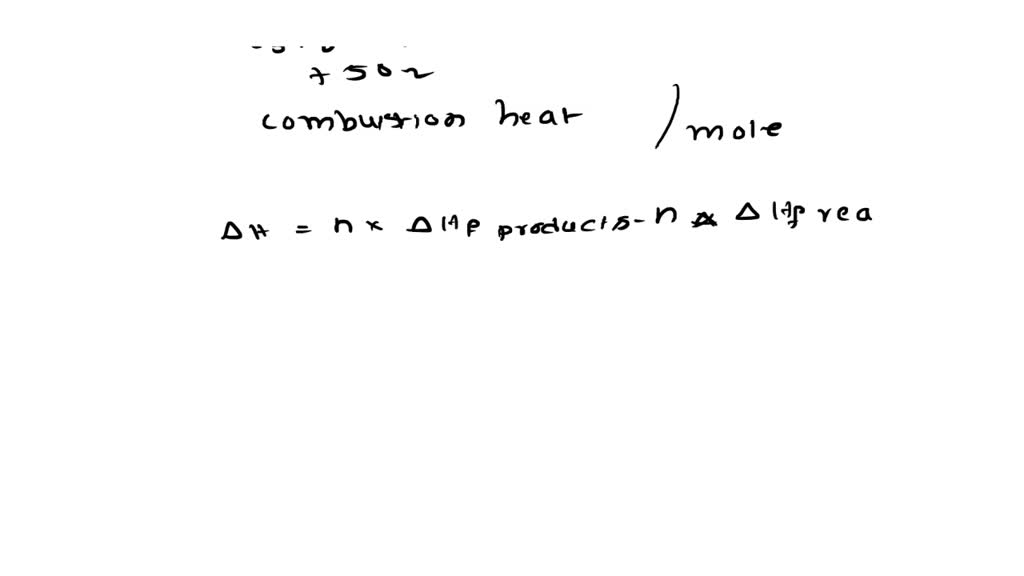 + 5O2
combustion heat / mole
ΔH = n x ΔHf products - n x ΔHf rea